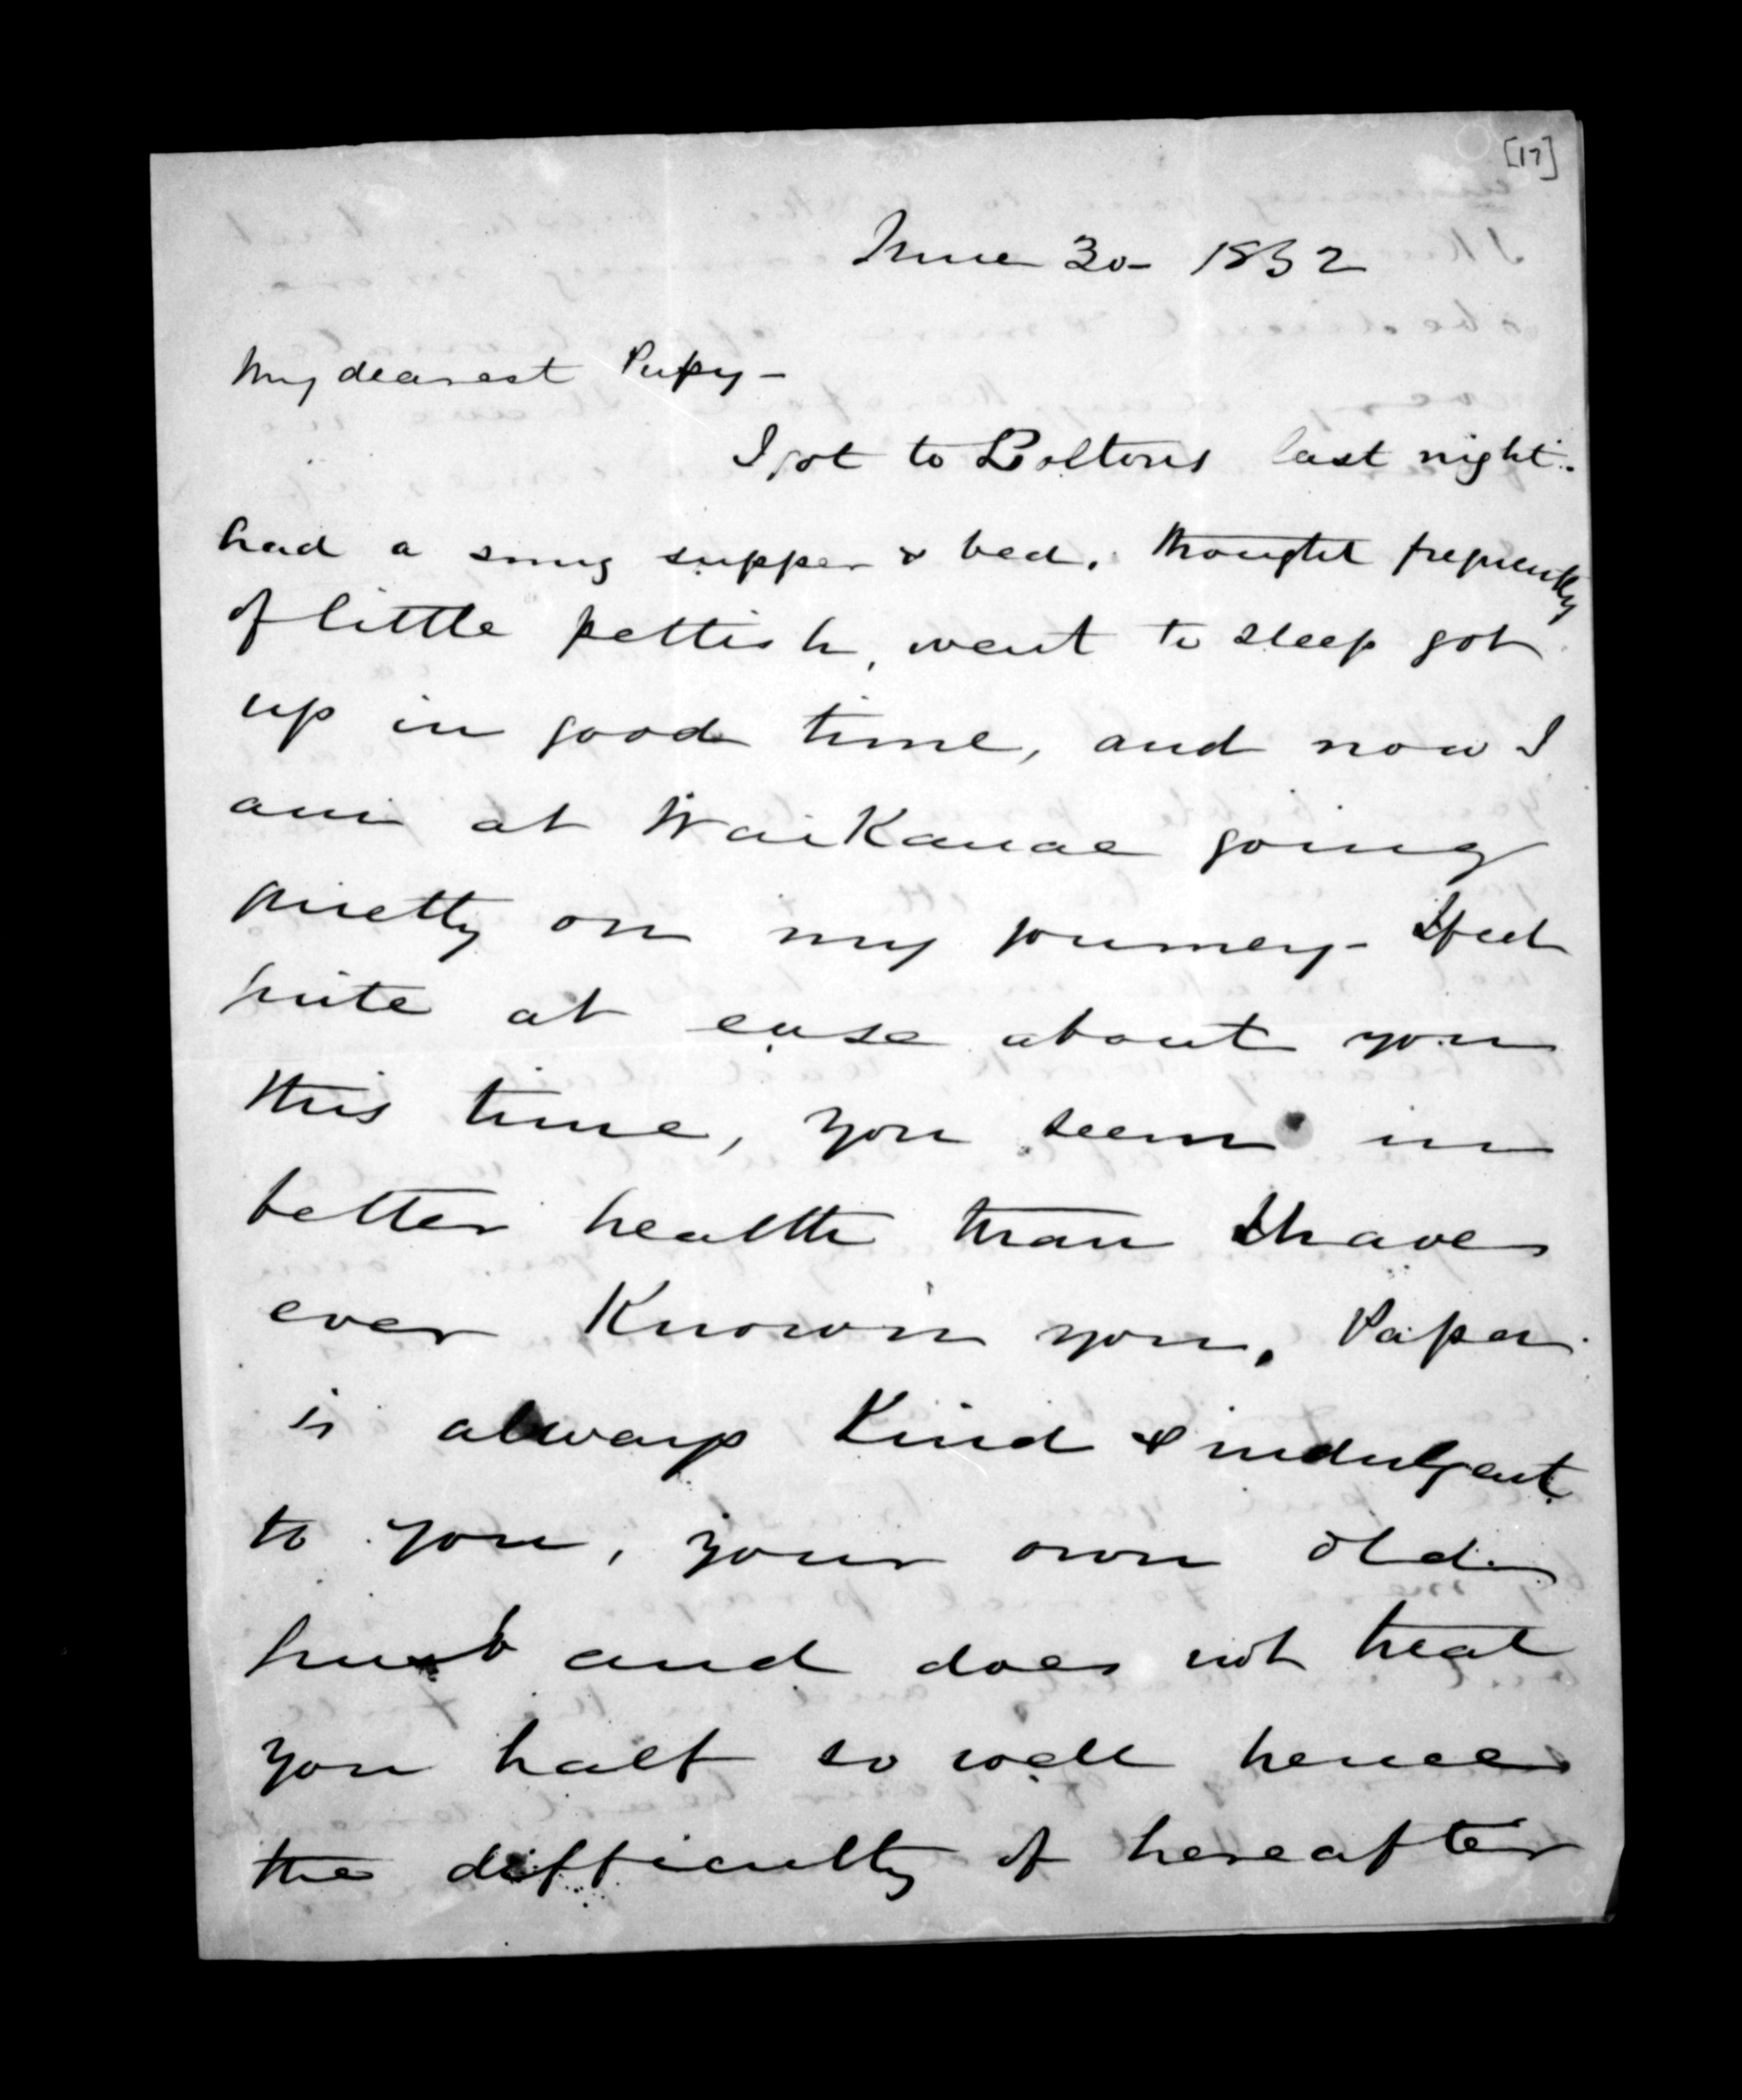 [17]
June 30- 1852
My dearest Pupy-
I got to Boltons last night.
had a snug supper & bed. thought frequently
of little pettish, went to sleep got
up in good time, and now I
am at WaiKanae going
quietly on my journey- I feel
quite at ease about you
this time, you seem in
better health than I have
ever Known you, Papa
is always Kind & indulgent
to you, your own old
husb and does not treat
you half so well hence
the difficulty of hereafter